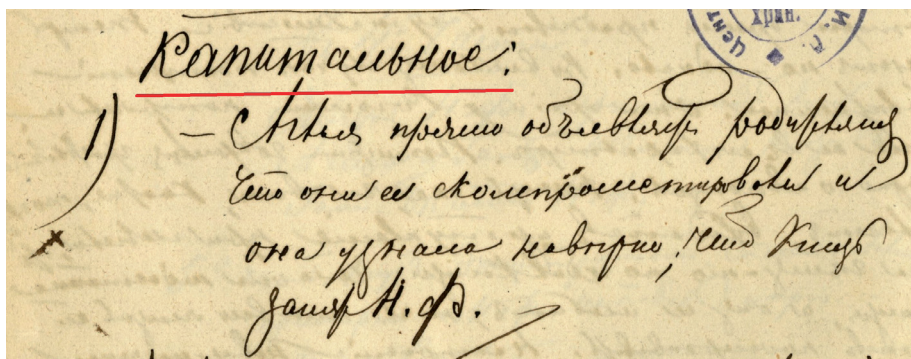 Центр
Хран.
Капитальное:
1) — Аглая прямо объявляет родителям
что они ее скомпрометировали и
она узнала наверно, что Князь
занят Н. Ф.